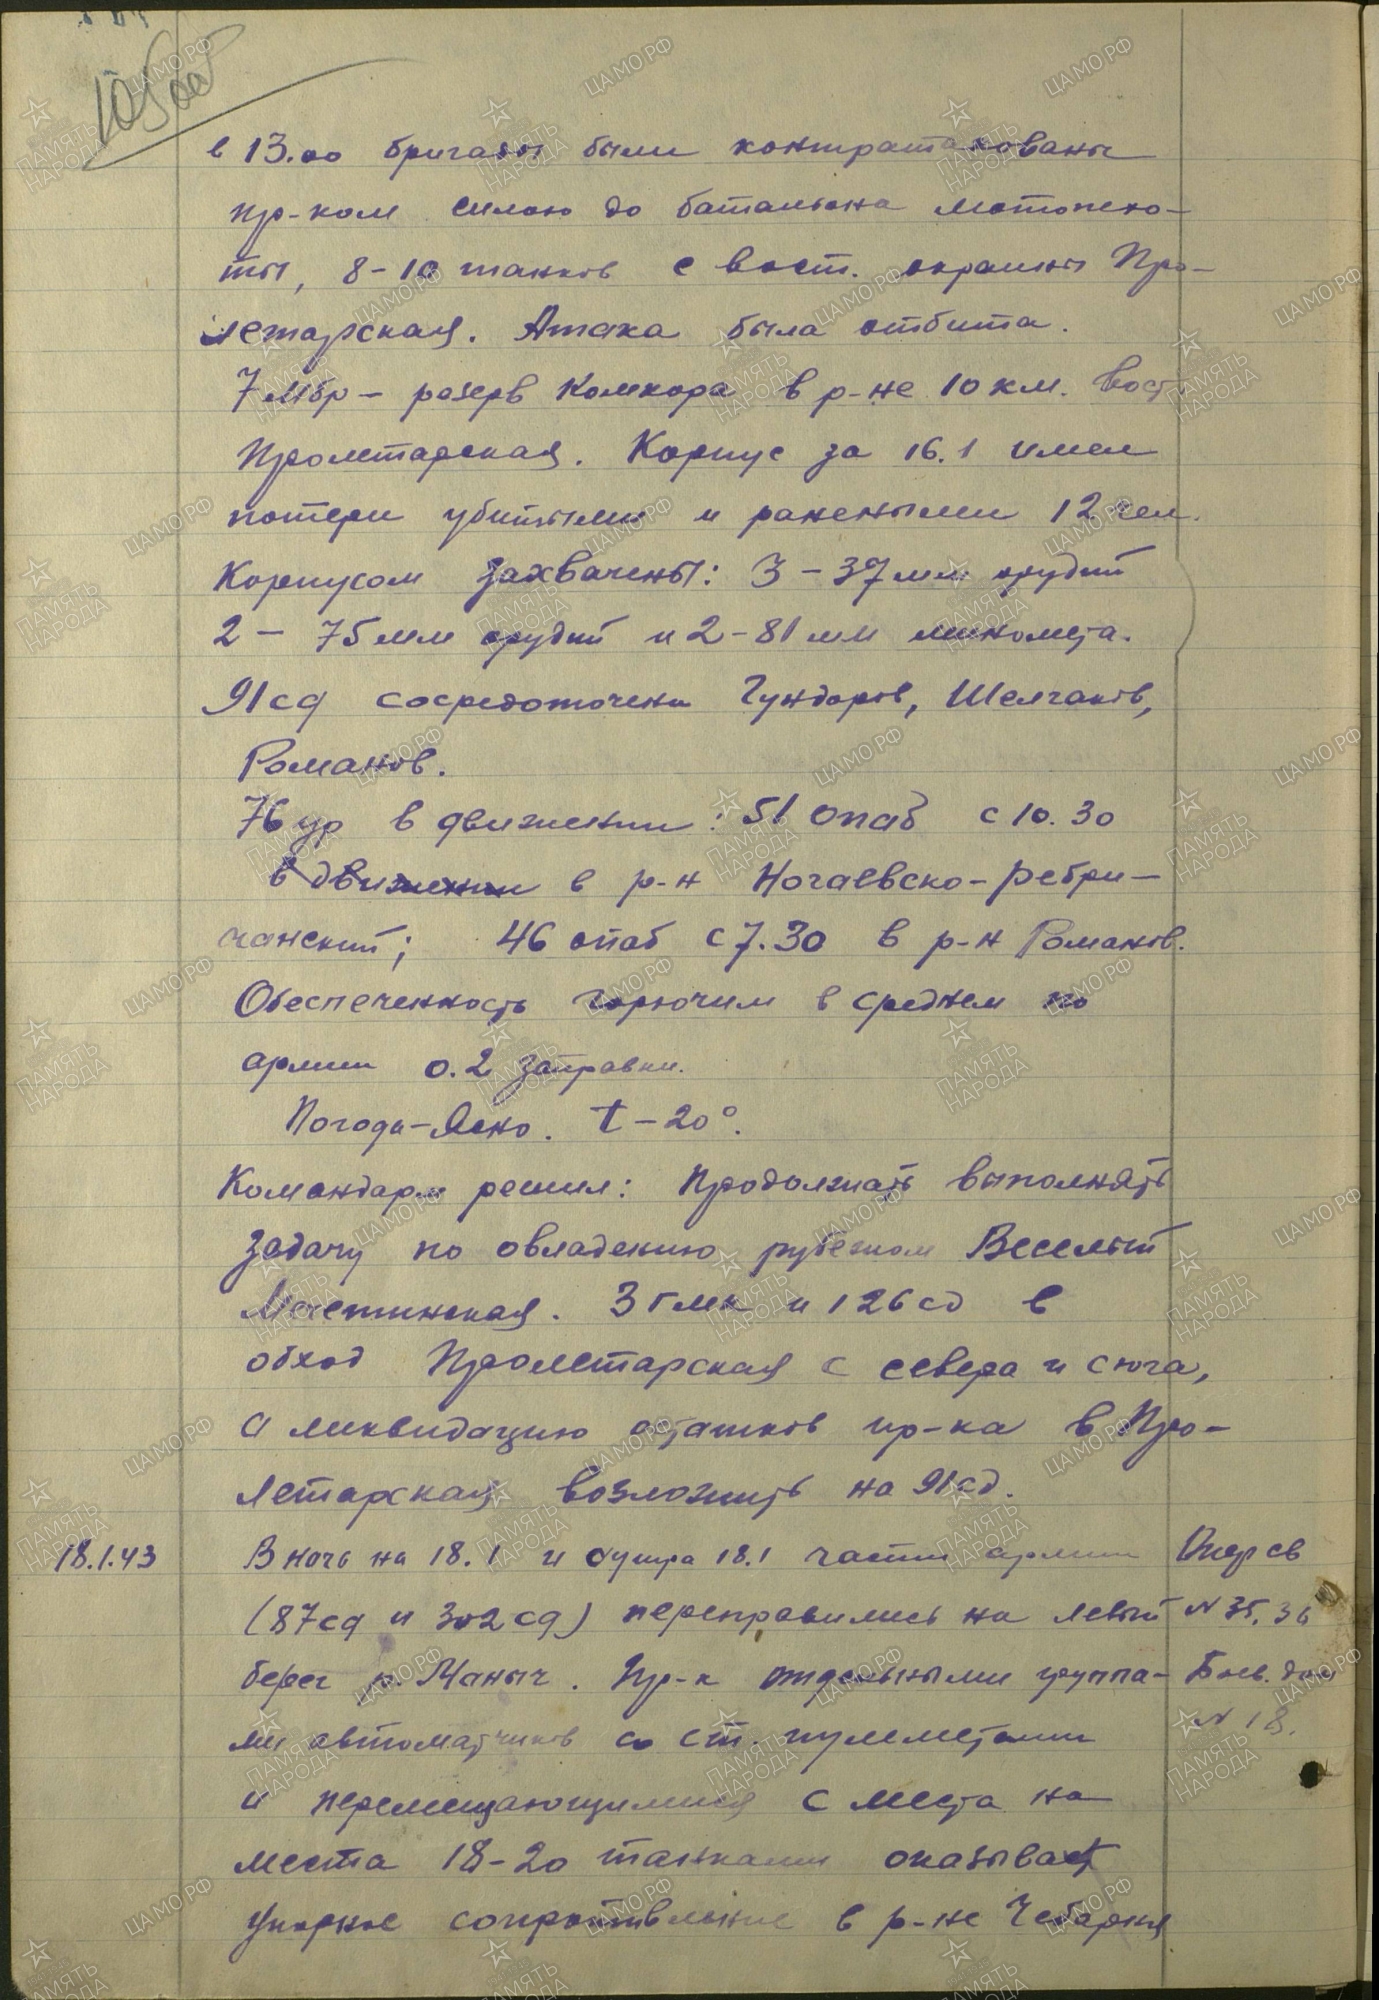 105 об
в 13.00 бригады были контратакованы
пр-ком силою до батальона мотопехо-
ты, 8-10 танков с вост. окраины Про-
летарская. Атака была отбита.
7 мбр – резерв Комкора в р-не 10 км. вост.
Пролетарская. Корпус за 16.1 имел
потери убитыми и ранеными 12 чел.
Корпусом захвачены: 3 – 37 мм орудий
2 – 75 мм орудий и 2 – 81 мм миномета.
91 сд сосредоточена Гундоров, Шелгаков,
Романов.
76 ур в движении: 51 опаб с 10.30
в движении в р-н Ногаевско-Ребри-
чанский; 46 опаб с 7.30 в р-н Романов.
Обеспеченность горючим в среднем по
армии 0.2 заправки.
Погода – Ясно. t – 20°.
Командарм решил: Продолжать выполнять
задачу по овладению рубежом Веселый
Мечетинская. 3 гмк и 126 сд в
обход Пролетарская с севера и с юга,
а ликвидацию остатков пр-ка в Про-
летарская возложить на 91 сд.
18.1.43 В ночь на 18.1 и с утра 18.1 части армии Опер св
(87 сд и 302 сд) переправились на левый N 35, 36
берег р. Маныч. Пр-к отдельными группа- Боев. дон
ми автоматчиков со ст. пулеметами N 18.
и перемещающимися с места на
места 18-20 танками оказывает
упорное сопротивление в р-не Чебария